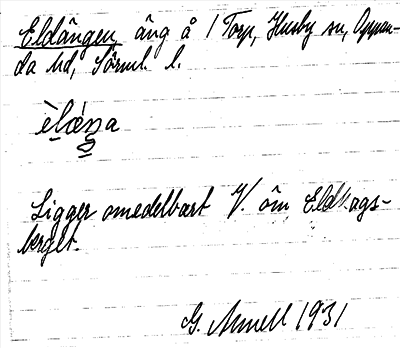 Eldängen äng å 1 Torp, Husby sn, Oppun-
da hd, Sörml. l.
Ligger omedelbart V. om Eldkogs-
berget.
G. 1931